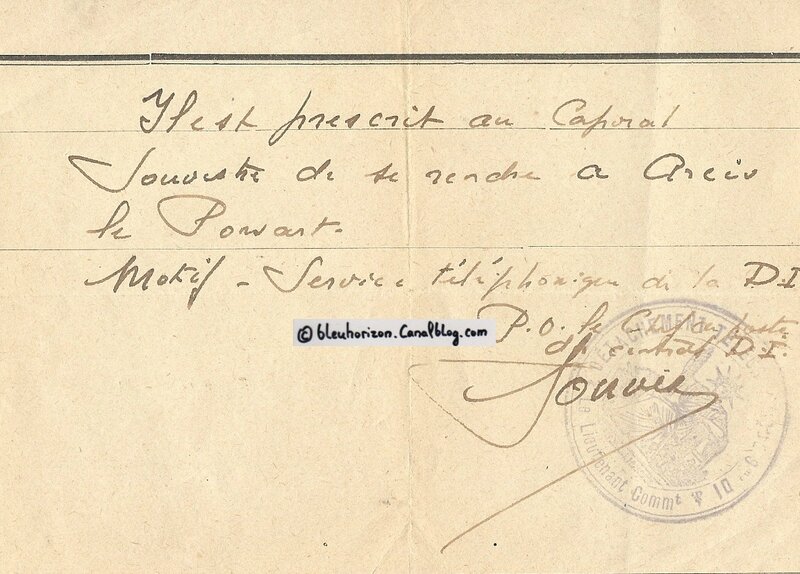 Il est prescrit au Caporal
Souvestre de se rendre a Arcis
le Ponsart.
Motif - Service téléphonique de la D.I
P.O. le Cal du poste
du central D.I.
© bleuhorizon.Canalblog.com
DETACHEMENT TE
Le Lieutenant Commt